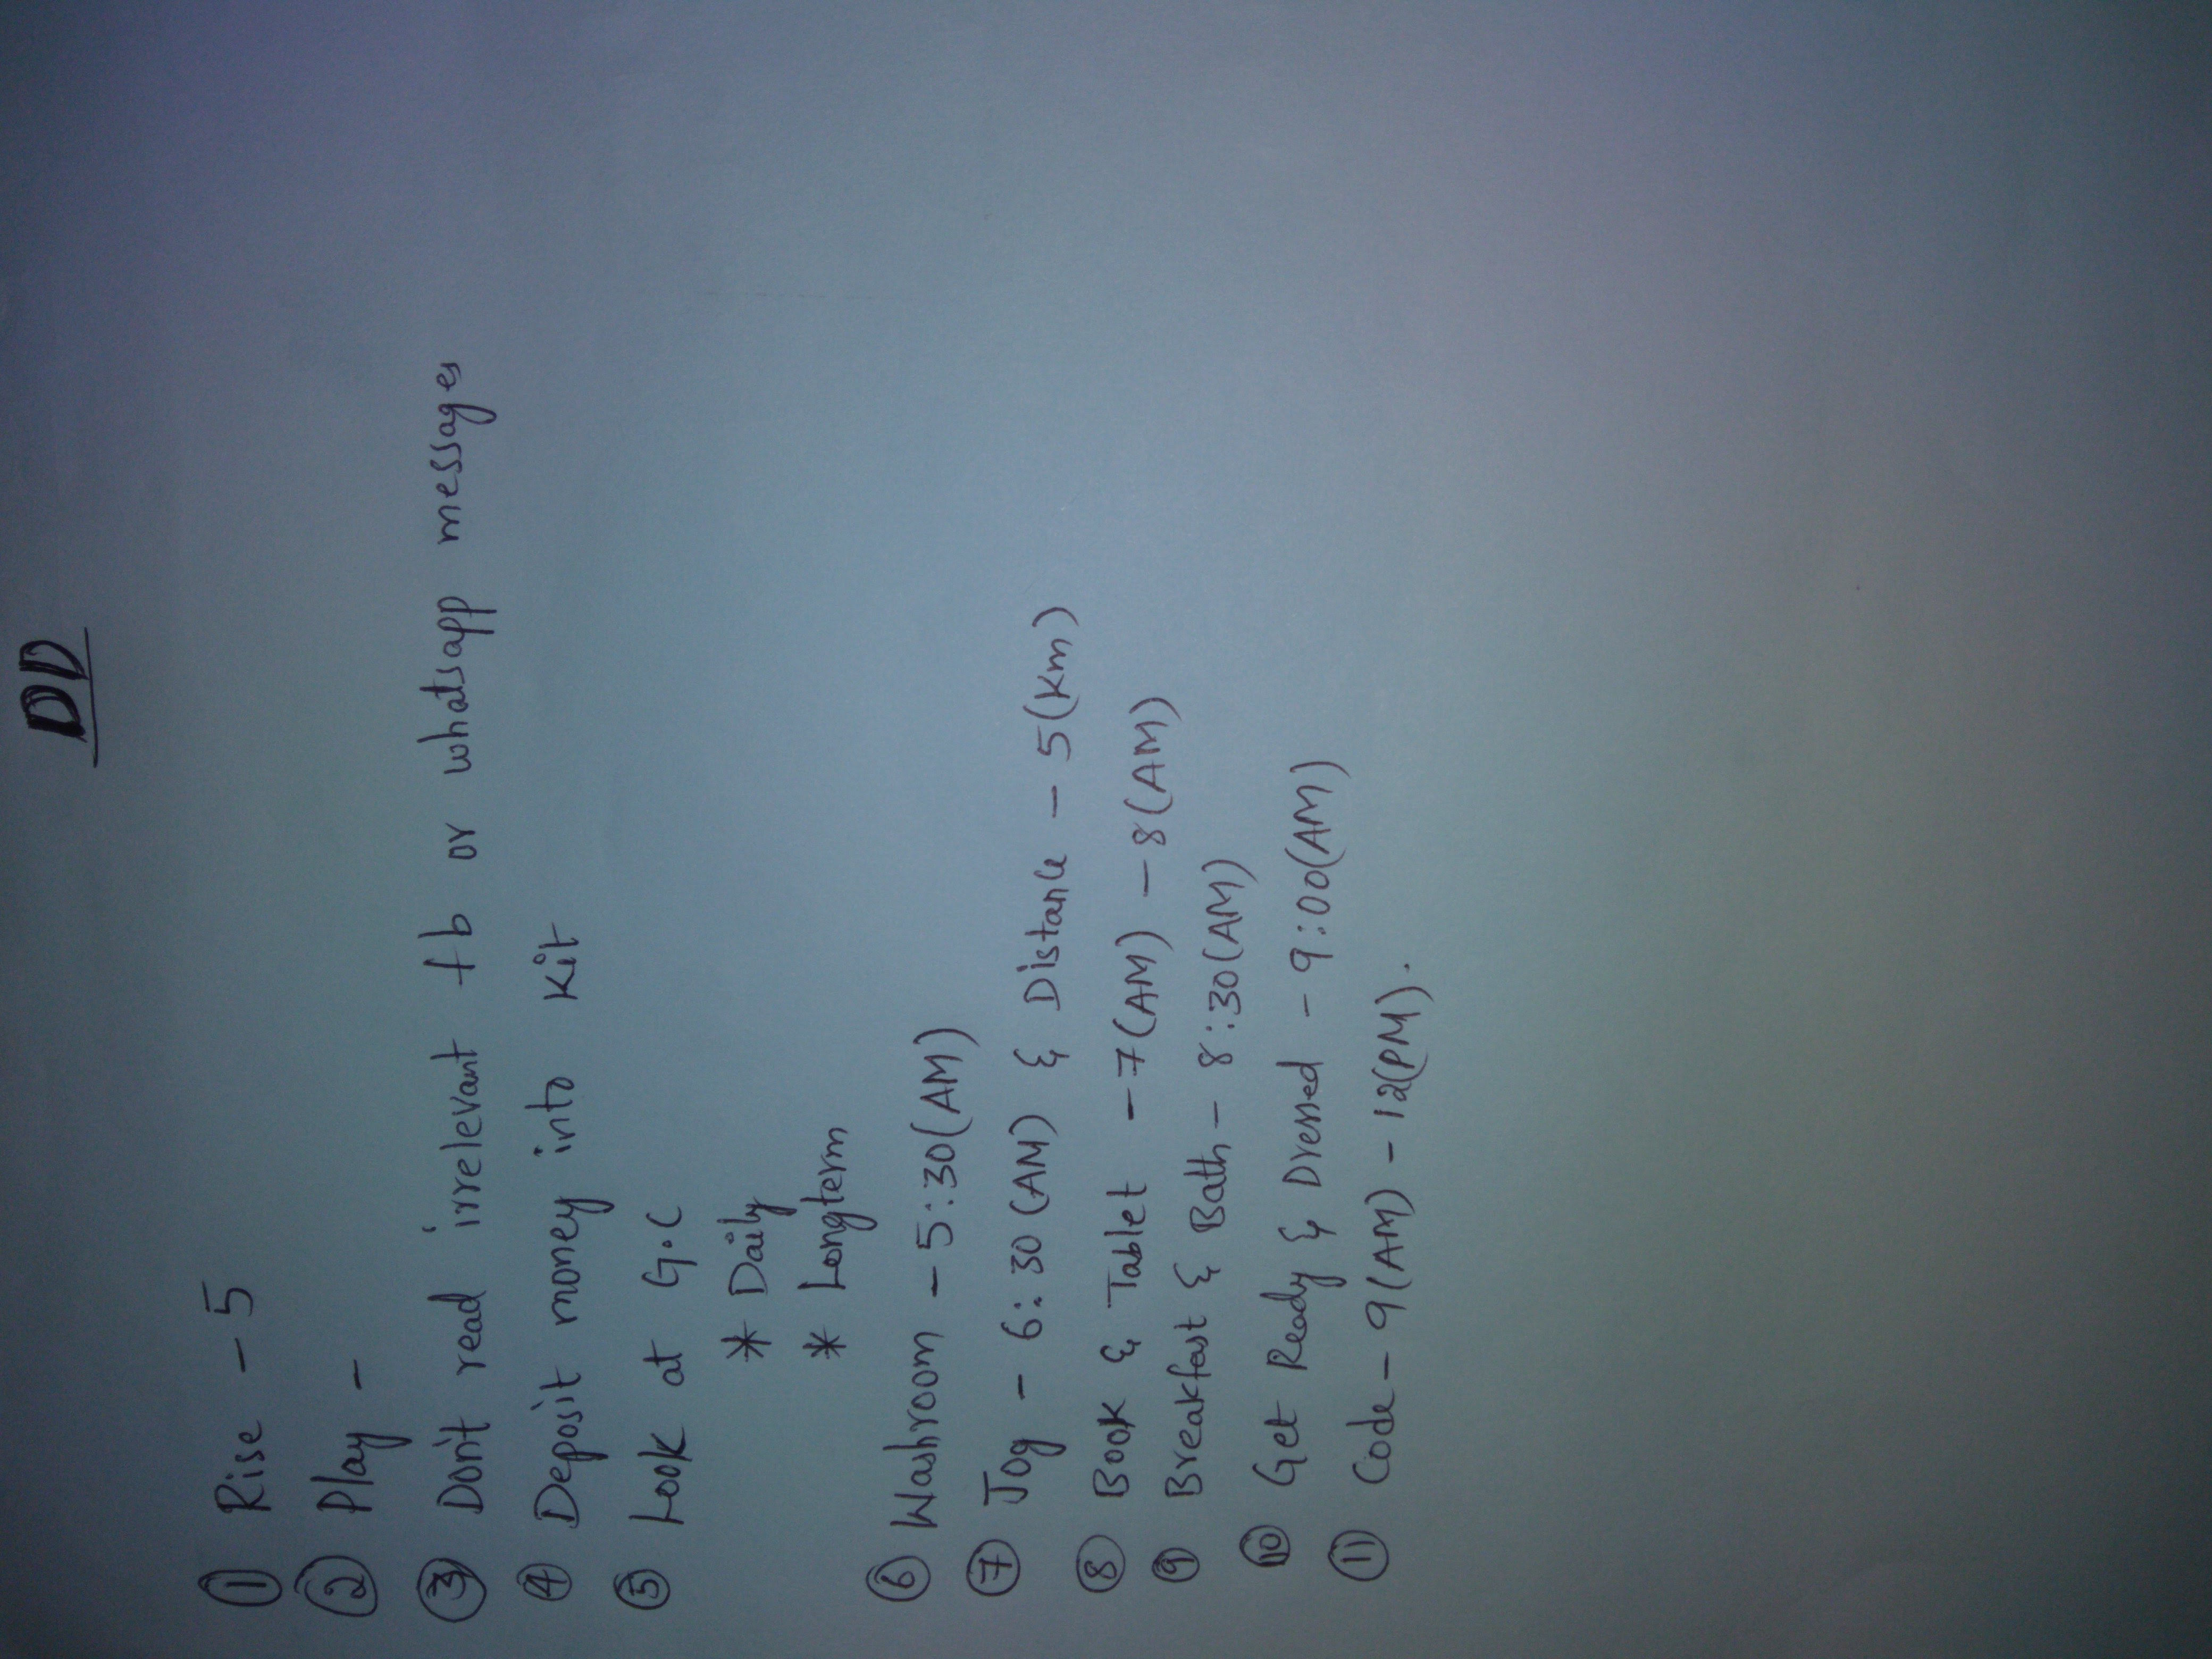 DD
① Rise - 5
② Play -
③ Don't read irrelevant fb or whatsapp messages
④ Deposit money into Kit
⑤ Look at G.C
* Daily
* Longterm
⑥ Washroom - 5:30(AM)
⑦ Jog - 6:30 (AM) & Distance - 5(Km)
⑧ Book & Tablet - 7(AM) - 8(AM)
⑨ Breakfast & Bath - 8:30(AM)
⑩ Get Ready & Dressed - 9:00(AM)
⑪ Code - 9(AM) - 12(PM).